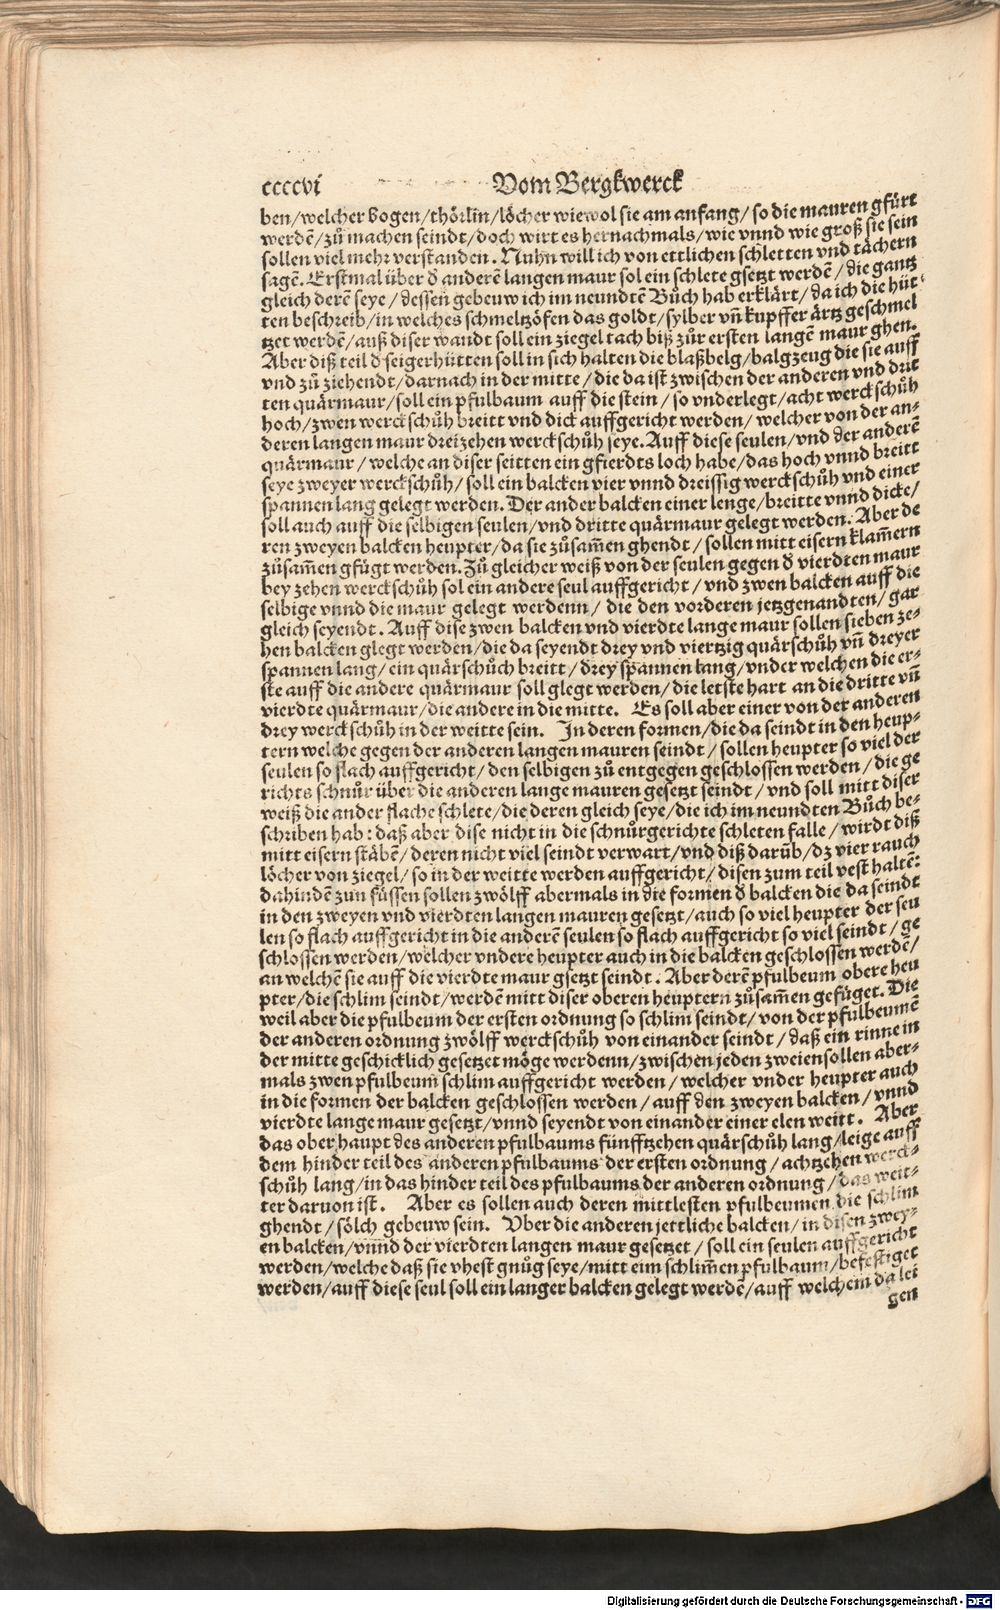 ccccvi Vom Bergkwerck
ben/welcher bogen/thörlin/löcher wiewol sie am anfang/so die mauren gfürt
werdẽ/zů machen seindt/doch wirt es hernachmals/wie vnnd wie groß sie sein
sollen viel mehr verstanden. Nuhn will ich von ettlichen schletten vnd tächern
sagẽ. Erstmal über d̕ anderẽ langen maur sol ein schlete gsetzt werdẽ/die gantz
gleich derẽ seye/dessen gebeuw ich im neundtẽ Bůch hab erklärt/da ich die hüt⸗
ten beschreib/in welches schmeltzöfen das goldt/sylber vñ kupffer ärtz geschmel
tzet werdẽ/auß diser wandt soll ein ziegel tach biß zůr ersten langẽ maur ghen.
Aber diß teil d̕ seigerhütten soll in sich halten die blaßbelg/balgzeug die sie auff
vnd zů ziehendt/darnach in der mitte/die da ist zwischen der anderen vnd drit
ten quärmaur/soll ein pfulbaum auff die stein/so vnderlegt/acht werckschůh
hoch/zwen werckschůh breitt vnd dick auffgericht werden/welcher von der an⸗
deren langen maur dreizehen werckschůh seye. Auff diese seulen/vnd der anderẽ
quärmaur/welche an diser seitten ein gfierdts loch habe/das hoch vnnd breitt
seye zweyer werckschůh/soll ein balcken vier vnnd dreissig werckschůh vnd einer
spannen lang gelegt werden. Der ander balcken einer lenge/breitte vnnd dicke/
soll auch auff die selbigen seulen/vnd dritte quärmaur gelegt werden. Aber de
ren zweyen balcken heupter/da sie zůsam̃en ghendt/sollen mitt eisern klam̃ern
zůsam̃en gfügt werden. Zů gleicher weiß von der seulen gegen d̕ vierdten maur
bey zehen werckschůh sol ein andere seul auffgericht/vnd zwen balcken auff die
selbige vnnd die maur gelegt werdenn/die den vorderen jetzgenandten/gar
gleich seyendt. Auff dise zwen balcken vnd vierdte lange maur sollen sieben ze⸗
hen balcken glegt werden/die da seyendt drey vnd viertzig quärschůh vñ dreyer
spannen lang/ein quärschůch breitt/drey spannen lang/vnder welchen die er⸗
ste auff die andere quärmaur soll glegt werden/die letste hart an die dritte vñ
vierdte quärmaur/die andere in die mitte. Es soll aber einer von der anderen
drey werckschůh in der weitte sein. In deren formen/die da seindt in den heup⸗
tern welche gegen der anderen langen mauren seindt/sollen heupter so viel der
seulen so flach auffgericht/den selbigen zů entgegen geschlossen werden/die ge
richts schnůr über die anderen lange mauren gesetzt seindt/vnd soll mitt diser
weiß die ander flache schlete/die deren gleich seye/die ich im neundten Bůch be⸗
schriben hab: daß aber dise nicht in die schnůrgerichte schleten falle/wirdt diß
mitt eisern stäbẽ/deren nicht viel seindt verwart/vnd diß darũb/dz vier rauch
löcher von ziegel/so in der weitte werden auffgericht/disen zum teil vest haltẽ:
dahindẽ zun füssen sollen zwölff abermals in die formen d̕ balcken die da seindt
in den zweyen vnd vierdten langen mauren gesetzt/auch so viel heupter der seu
len so flach auffgericht in die anderẽ seulen so flach auffgericht so viel seindt/ge
schlossen werden/welcher vndere heupter auch in die balcken geschlossen werdẽ/
an welchen sie auff die vierdte maur gsetzt seindt. Aber derẽ pfulbeum obere heu
pter/die schlim seindt/werdẽ mitt diser oberen heuptern zůsam̃en gefüget. Die
weil aber die pfulbeum der ersten ordnung so schlim seindt/von der pfulbeumẽ
der anderen ordnung zwölff werckschůh von einander seindt/daß ein rinne in
der mitte geschicklich gesetzet möge werdenn/zwischen jeden zweien sollen aber⸗
mals zwen pfulbeum̃ schlim auffgericht werden/welcher vnder heupter auch
in die formen der balcken geschlossen werden/auff den zweyen balcken/vnnd
vierdte lange maur gesetzt/vnnd seyendt von einander einer elen weitt. Aber
das ober haupt des anderen pfulbaums fünfftzehen quärschůh lang/leige auff
dem hinder teil des anderen pfulbaums der ersten ordnung/achtzehen werck⸗
schůh lang/in das hinder teil des pfulbaums der anderen ordnung/das weit⸗
ter daruon ist. Aber es sollen auch deren mittlesten pfulbeumen die schlim
ghendt/sölch gebeuw sein. Vber die anderen jettliche balcken/in disen zwey⸗
en balcken/vnnd der vierdten langen maur gesetzet/soll ein seulen auffgericht
werden/welche daß sie vhest gnůg seye/mitt eim schlim̃en pfulbaum/befestiget
werden/auff diese seul soll ein langer balcken gelegt werdẽ/auff welchem da lei
gen
Digitalisierung gefördert durch die Deutsche Forschungsgemeinschaft - DFG